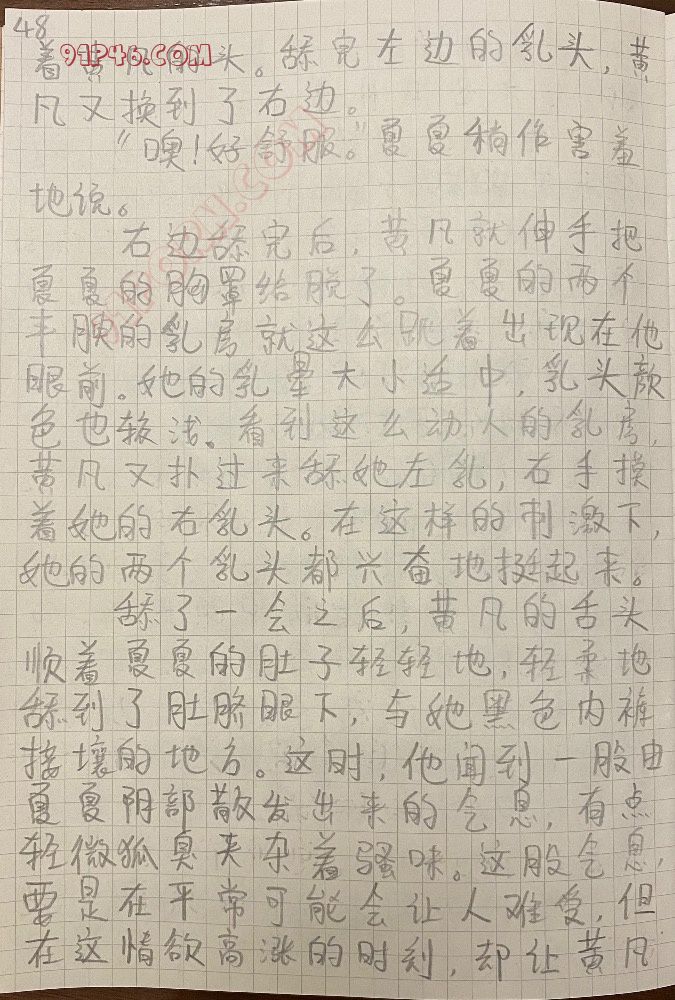 48
91P46.COM
着黄凡的头。舔完左边的乳头,黄
凡又换到了右边。
“噢!好舒服。”夏夏稍作害羞
地说。
右边舔完后,黄凡就伸手把
夏夏的胸罩给脱了。夏夏的两个
丰腴的乳房就这么跳着出现在他
眼前。她的乳晕大小适中,乳头颜
色也较浅。看到这么动人的乳房,
黄凡又扑过来舔她左乳,右手摸
着她的右乳头。在这样的刺激下,
她的两个乳头都兴奋地挺起来。
舔了一会之后,黄凡的舌头
顺着夏夏的肚子轻轻地,轻柔地
舔到了肚脐眼下,与她黑色内裤
接壤的地方。这时,他闻到一股由
夏夏阴部散发出来的气息,有点
轻微狐臭夹杂着骚味。这股气息,
要是在平常可能会让人难受,但
在这情欲高涨的时刻,却让黄凡